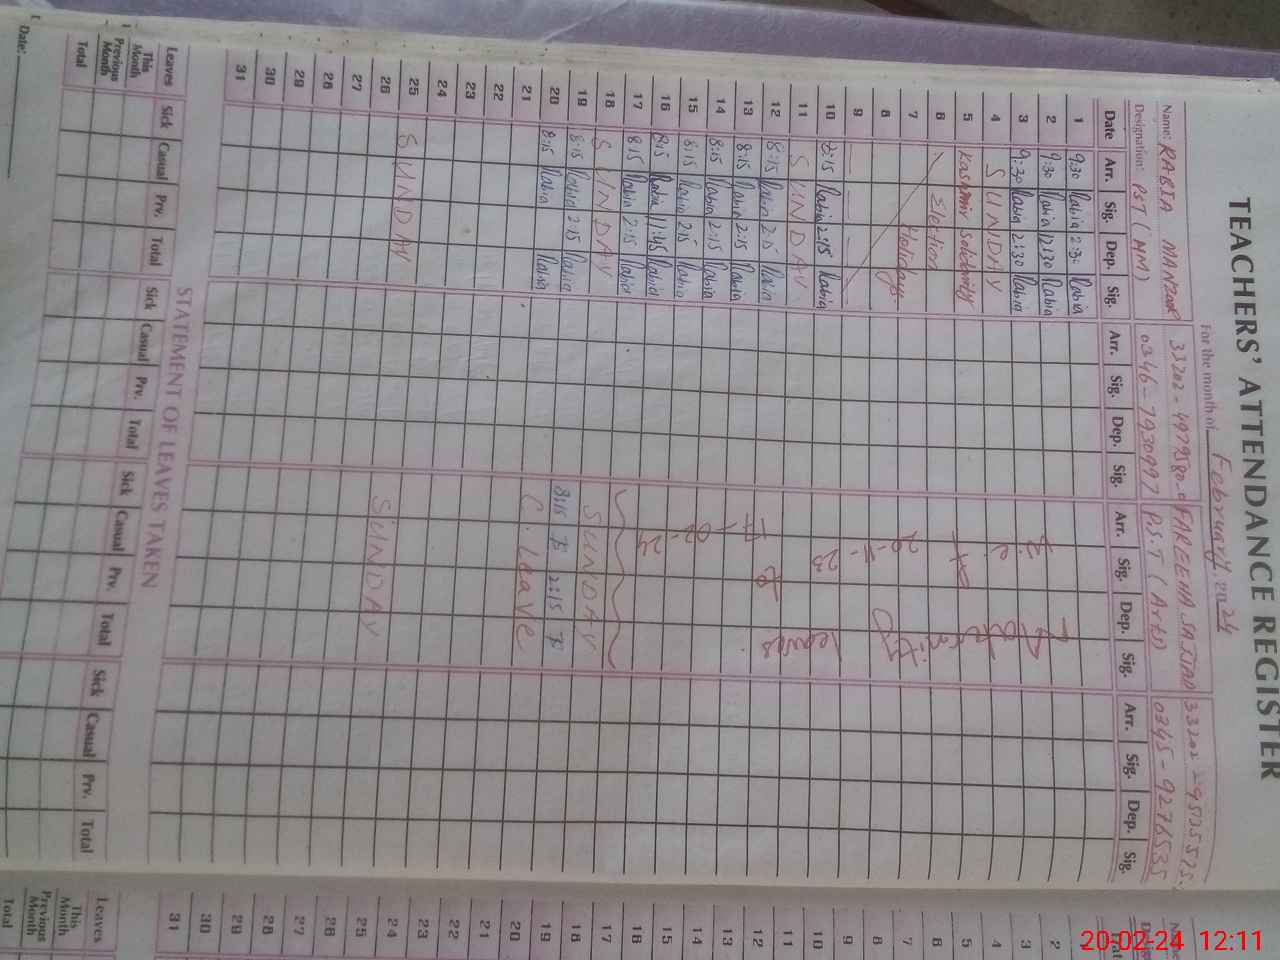 TEACHERS' ATTENDANCE REGISTER
For the month of February, 2024
Name: RABIA MANZOOR 33202-4979580-0 FAREEHA SAJJAD 33202
Designation: PST (HM) 0346-7930997 P.S.T (Arts) 0345-9276535
Date Arr. Sig. Dep. Sig. Arr. Sig. Dep. Sig. Arr. Sig. Dep. Sig. Arr. Sig. Dep. Sig.
1 9:30 Rabia 2:30 Rabia
2 9:30 Rabia 12:30 Rabia
3 9:30 Rabia 2:30 Rabia
4 SUNDAY
5 Kashmir Solidarity
6 Election
7 Holidays
8
9
10 8:15 Rabia 2:15 Rabia
11 SUNDAY
12 8:15 Rabia 2:15 Rabia
13 8:15 Rabia 2:15 Rabia
14 8:15 Rabia 2:15 Rabia
15 8:15 Rabia 2:15 Rabia
16 8:15 Rabia 11:45 Rabia
17 8:15 Rabia 2:15 Rabia
18 SUNDAY SUNDAY
19 8:15 Rabia 2:15 Rabia 8:15 2:15
20 8:15 Rabia Rabia C. Leave
21
22
23
24
25 SUNDAY SUNDAY
26
27
28
29
30
31
Maternity leaves
20-11-23 to 17-02-24
STATEMENT OF LEAVES TAKEN
Leaves Sick Casual Prv. Total Sick Casual Prv. Total Sick Casual Prv. Total Sick Casual Prv. Total
This Month
Previous Month
Total
Date:
Leaves
This Month
Previous Month
Total
2
3
4
5
6
7
8
9
10
11
12
13
14
15
16
17
18
19
20
21
22
23
24
25
26
27
28
29
30
31
20-02-24 12:11